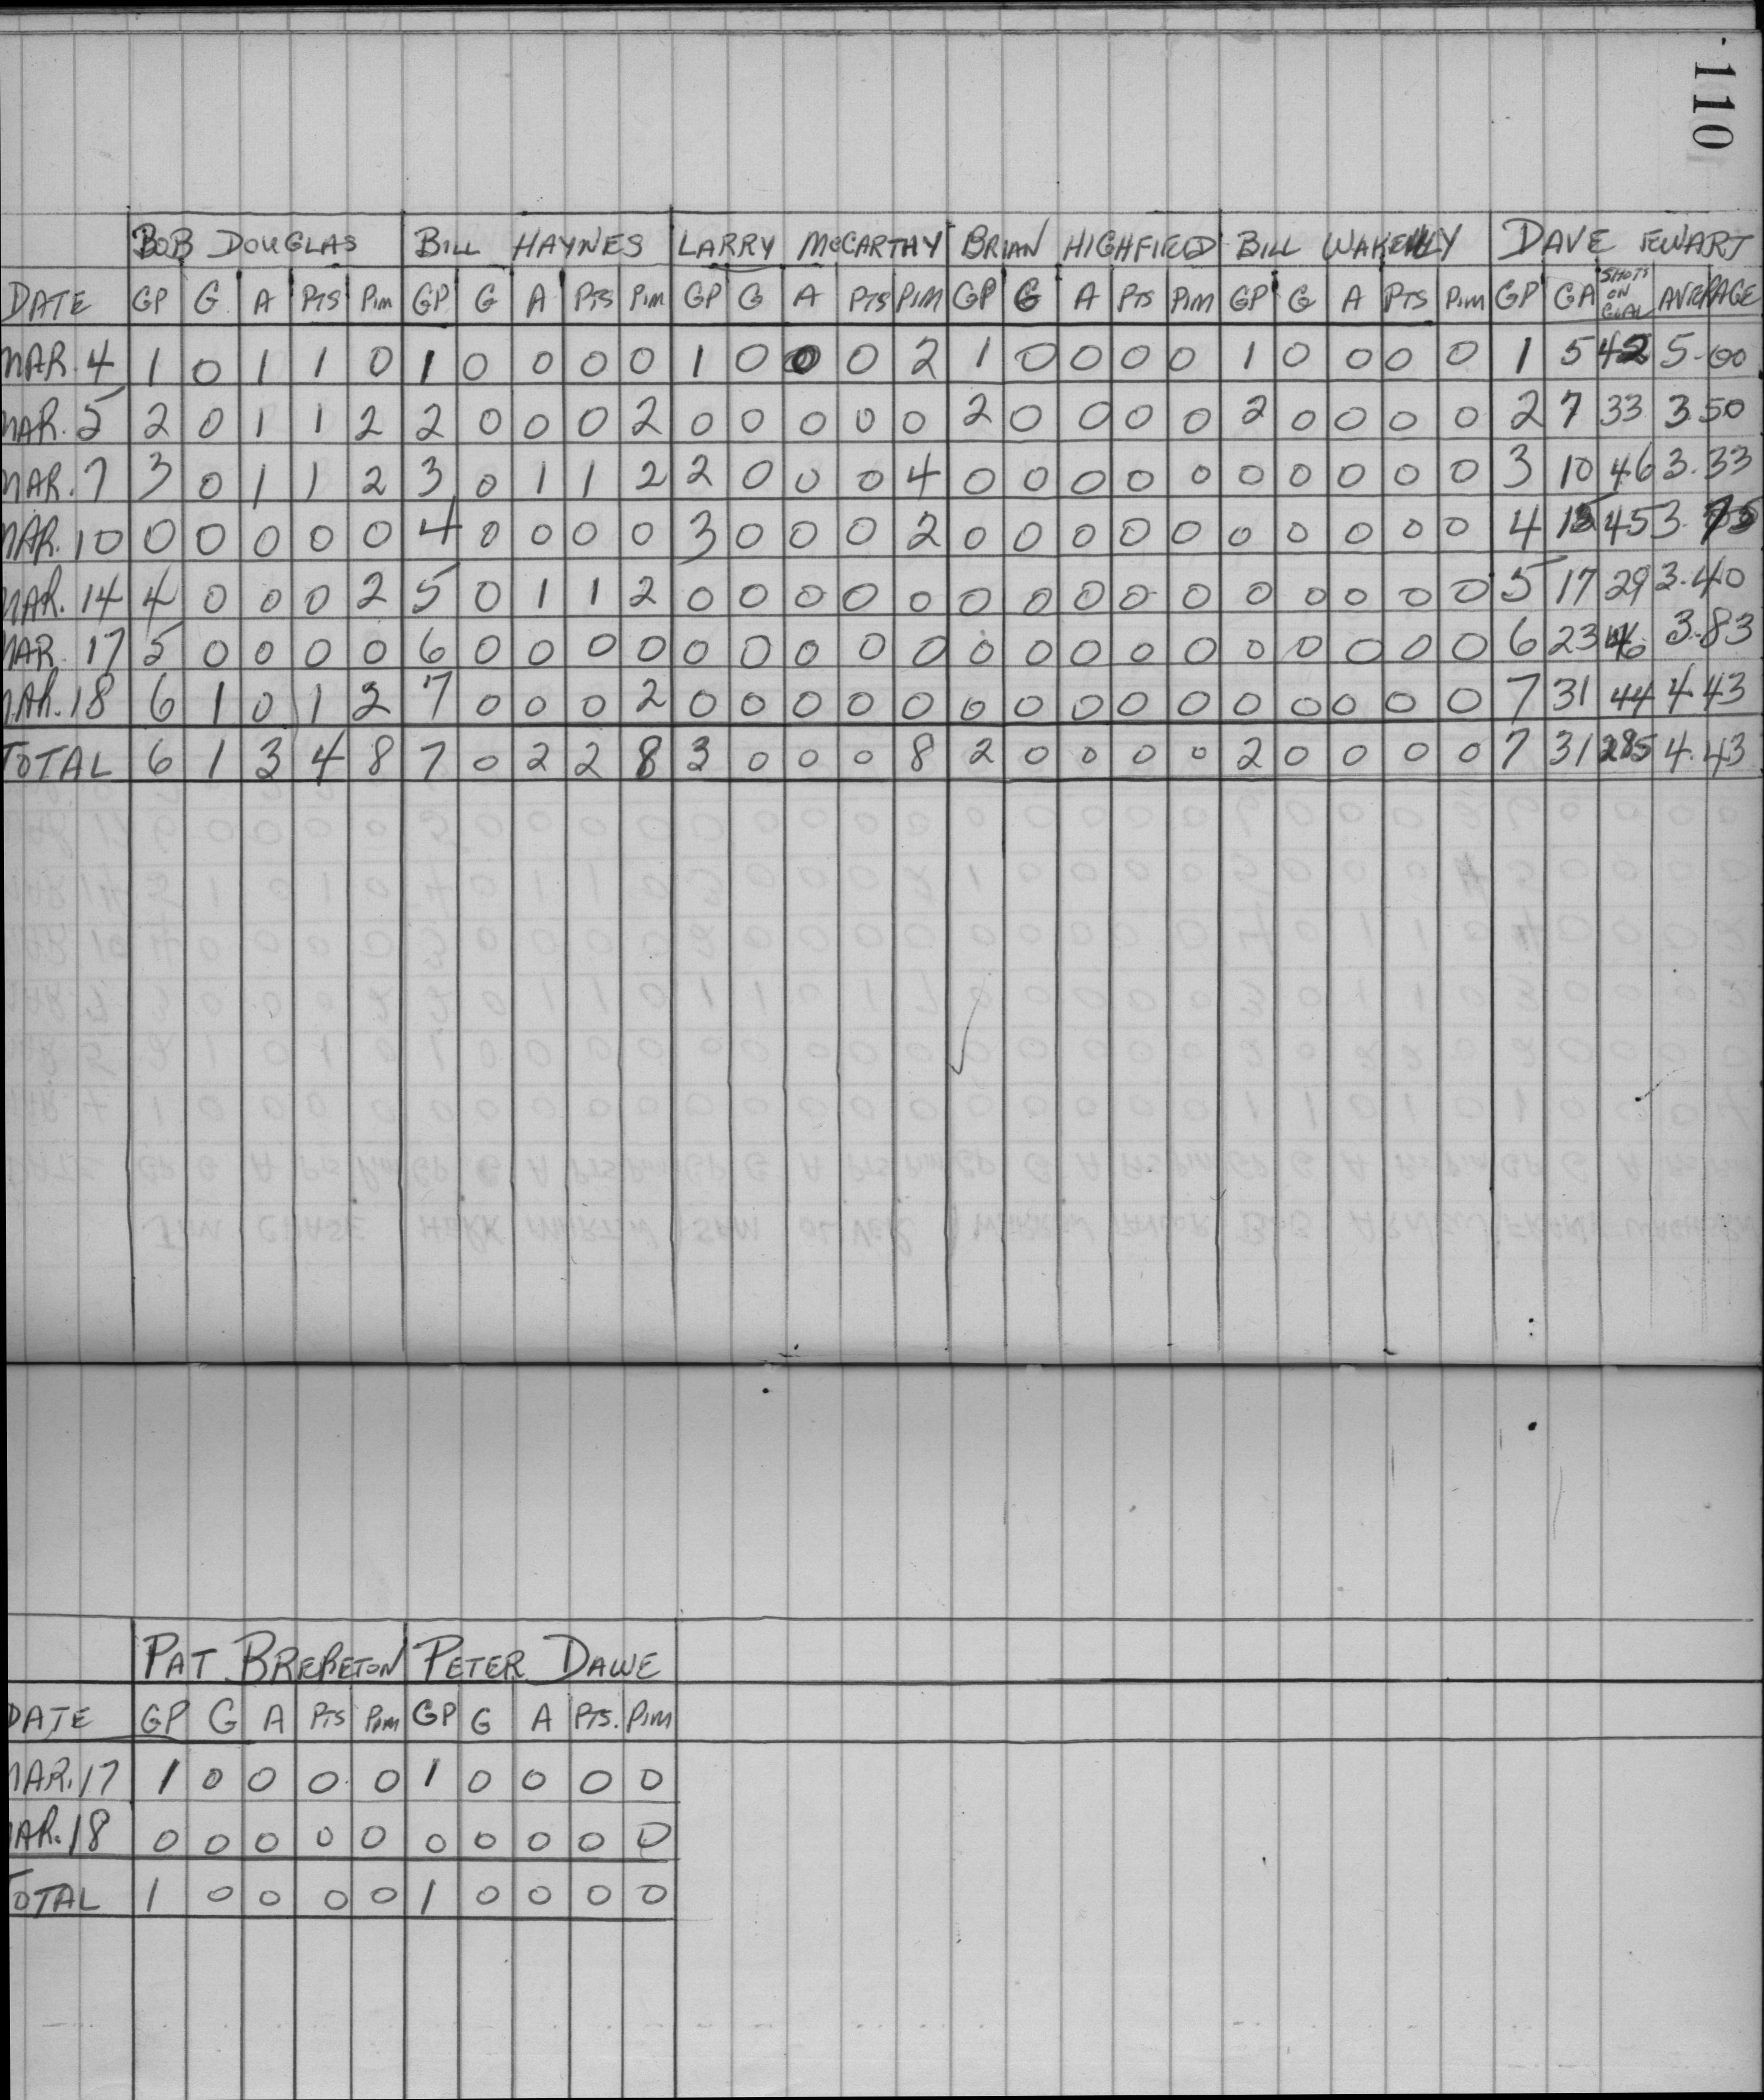 110
BOB DOUGLAS BILL HAYNES LARRY McCARTHY BRIAN HIGHFIELD BILL WAKELY DAVE EWART
DATE GP G A PTS Pim GP G A PTS Pim GP G A PTS PIM GP G A PTS PIM GP G A PTS Pim GP GA SHOTS ON GOAL AVERAGE
MAR. 4 1 0 1 1 0 1 0 0 0 0 1 0 0 0 2 1 0 0 0 0 1 0 0 0 0 1 5 42 5.00
MAR. 5 2 0 1 1 2 2 0 0 0 2 0 0 0 0 0 2 0 0 0 0 2 0 0 0 0 2 7 33 3.50
MAR. 7 3 0 1 1 2 3 0 1 1 2 2 0 0 0 4 0 0 0 0 0 0 0 0 0 0 3 10 46 3.33
MAR. 10 0 0 0 0 0 4 0 0 0 0 3 0 0 0 2 0 0 0 0 0 0 0 0 0 0 4 15 45 3.75
MAR. 14 4 0 0 0 2 5 0 1 1 2 0 0 0 0 0 0 0 0 0 0 0 0 0 0 0 5 17 29 3.40
MAR. 17 5 0 0 0 0 6 0 0 0 0 0 0 0 0 0 0 0 0 0 0 0 0 0 0 0 6 23 46 3.83
MAR. 18 6 1 0 1 2 7 0 0 0 2 0 0 0 0 0 0 0 0 0 0 0 0 0 0 0 7 31 44 4.43
TOTAL 6 1 3 4 8 7 0 2 2 8 3 0 0 0 8 2 0 0 0 0 2 0 0 0 0 7 31 285 4.43
PAT BREBETON PETER DAWE
DATE GP G A PTS Pim GP G A PTS. Pim
MAR. 17 1 0 0 0 0 1 0 0 0 0
MAR. 18 0 0 0 0 0 0 0 0 0 0
TOTAL 1 0 0 0 0 1 0 0 0 0